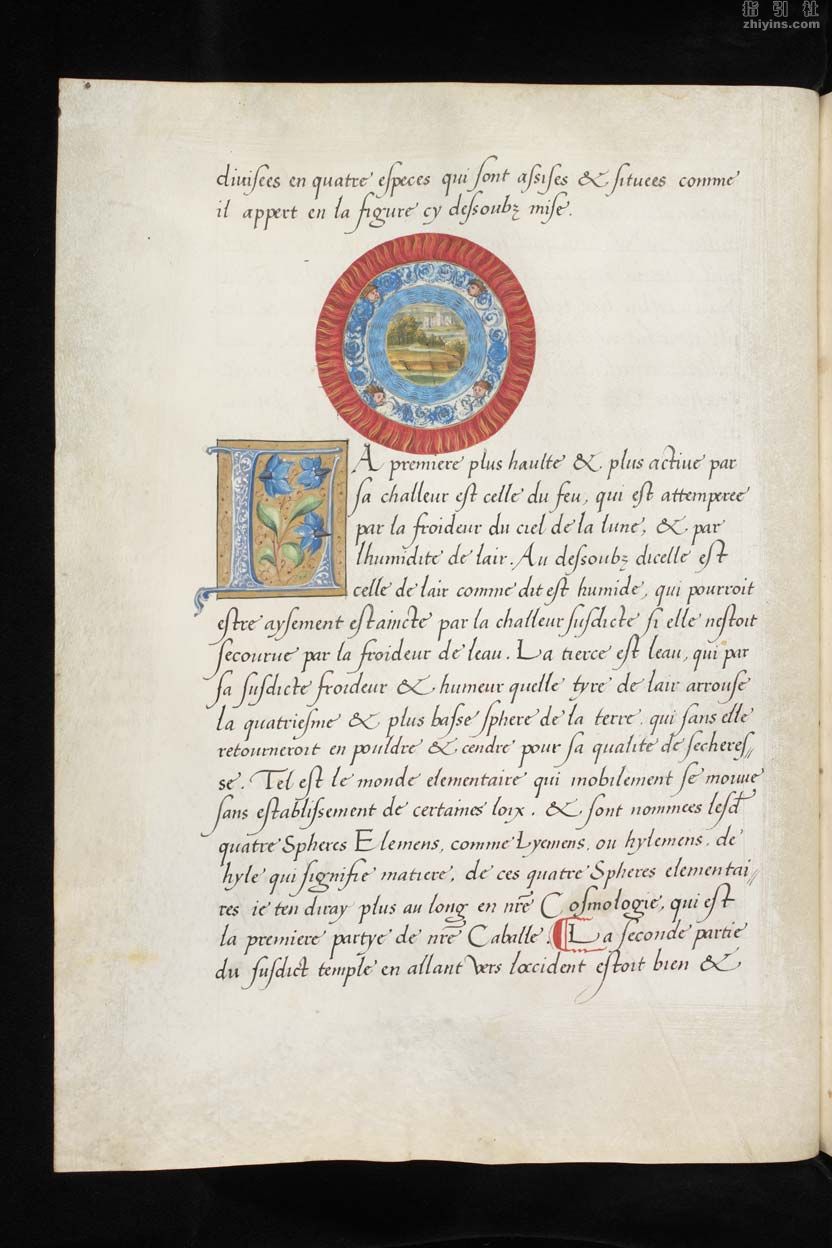 指引社
zhiyins.com
diuisees en quatre especes qui sont assises & situees comme
il appert en la figure cy dessoubz mise.
LA premiere plus haulte & plus actiue par
sa challeur est celle du feu, qui est attemperee
par la froideur du ciel de la lune, & par
lhumidite de lair. Au dessoubz dicelle est
celle de lair comme dit est humide, qui pourroit
estre aysement estaincte par la challeur susdicte si elle nestoit
secourue par la froideur de leau. La tierce est leau, qui par
sa susdicte froideur & humeur quelle tyre de lair arrouse
la quatriesme & plus basse sphere de la terre, qui sans elle
retourneroit en pouldre & cendre pour sa qualite de secheres//
se. Tel est le monde elementaire qui mobilement se mouue
sans establissement de certaines loix. & sont nommees lesd
quatre Spheres Elemens, comme Lyemens, ou hylemens, de
hyle qui signifie matiere, de ces quatre Spheres elementai//
res ie ten diray plus au long en nr̃e Cosmologie, qui est
la premiere partye de nr̃e Caballe. La seconde partie
du susdict temple en allant vers loccident estoit bien &